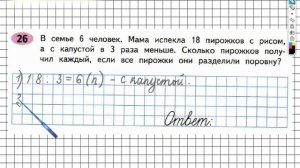 26
В семье 6 человек. Мама испекла 18 пирожков с рисом,
а с капустой в 3 раза меньше. Сколько пирожков полу-
чил каждый, если все пирожки они разделили поровну?
1) 18 : 3 = 6 (п) - с капустой.
2
Ответ: